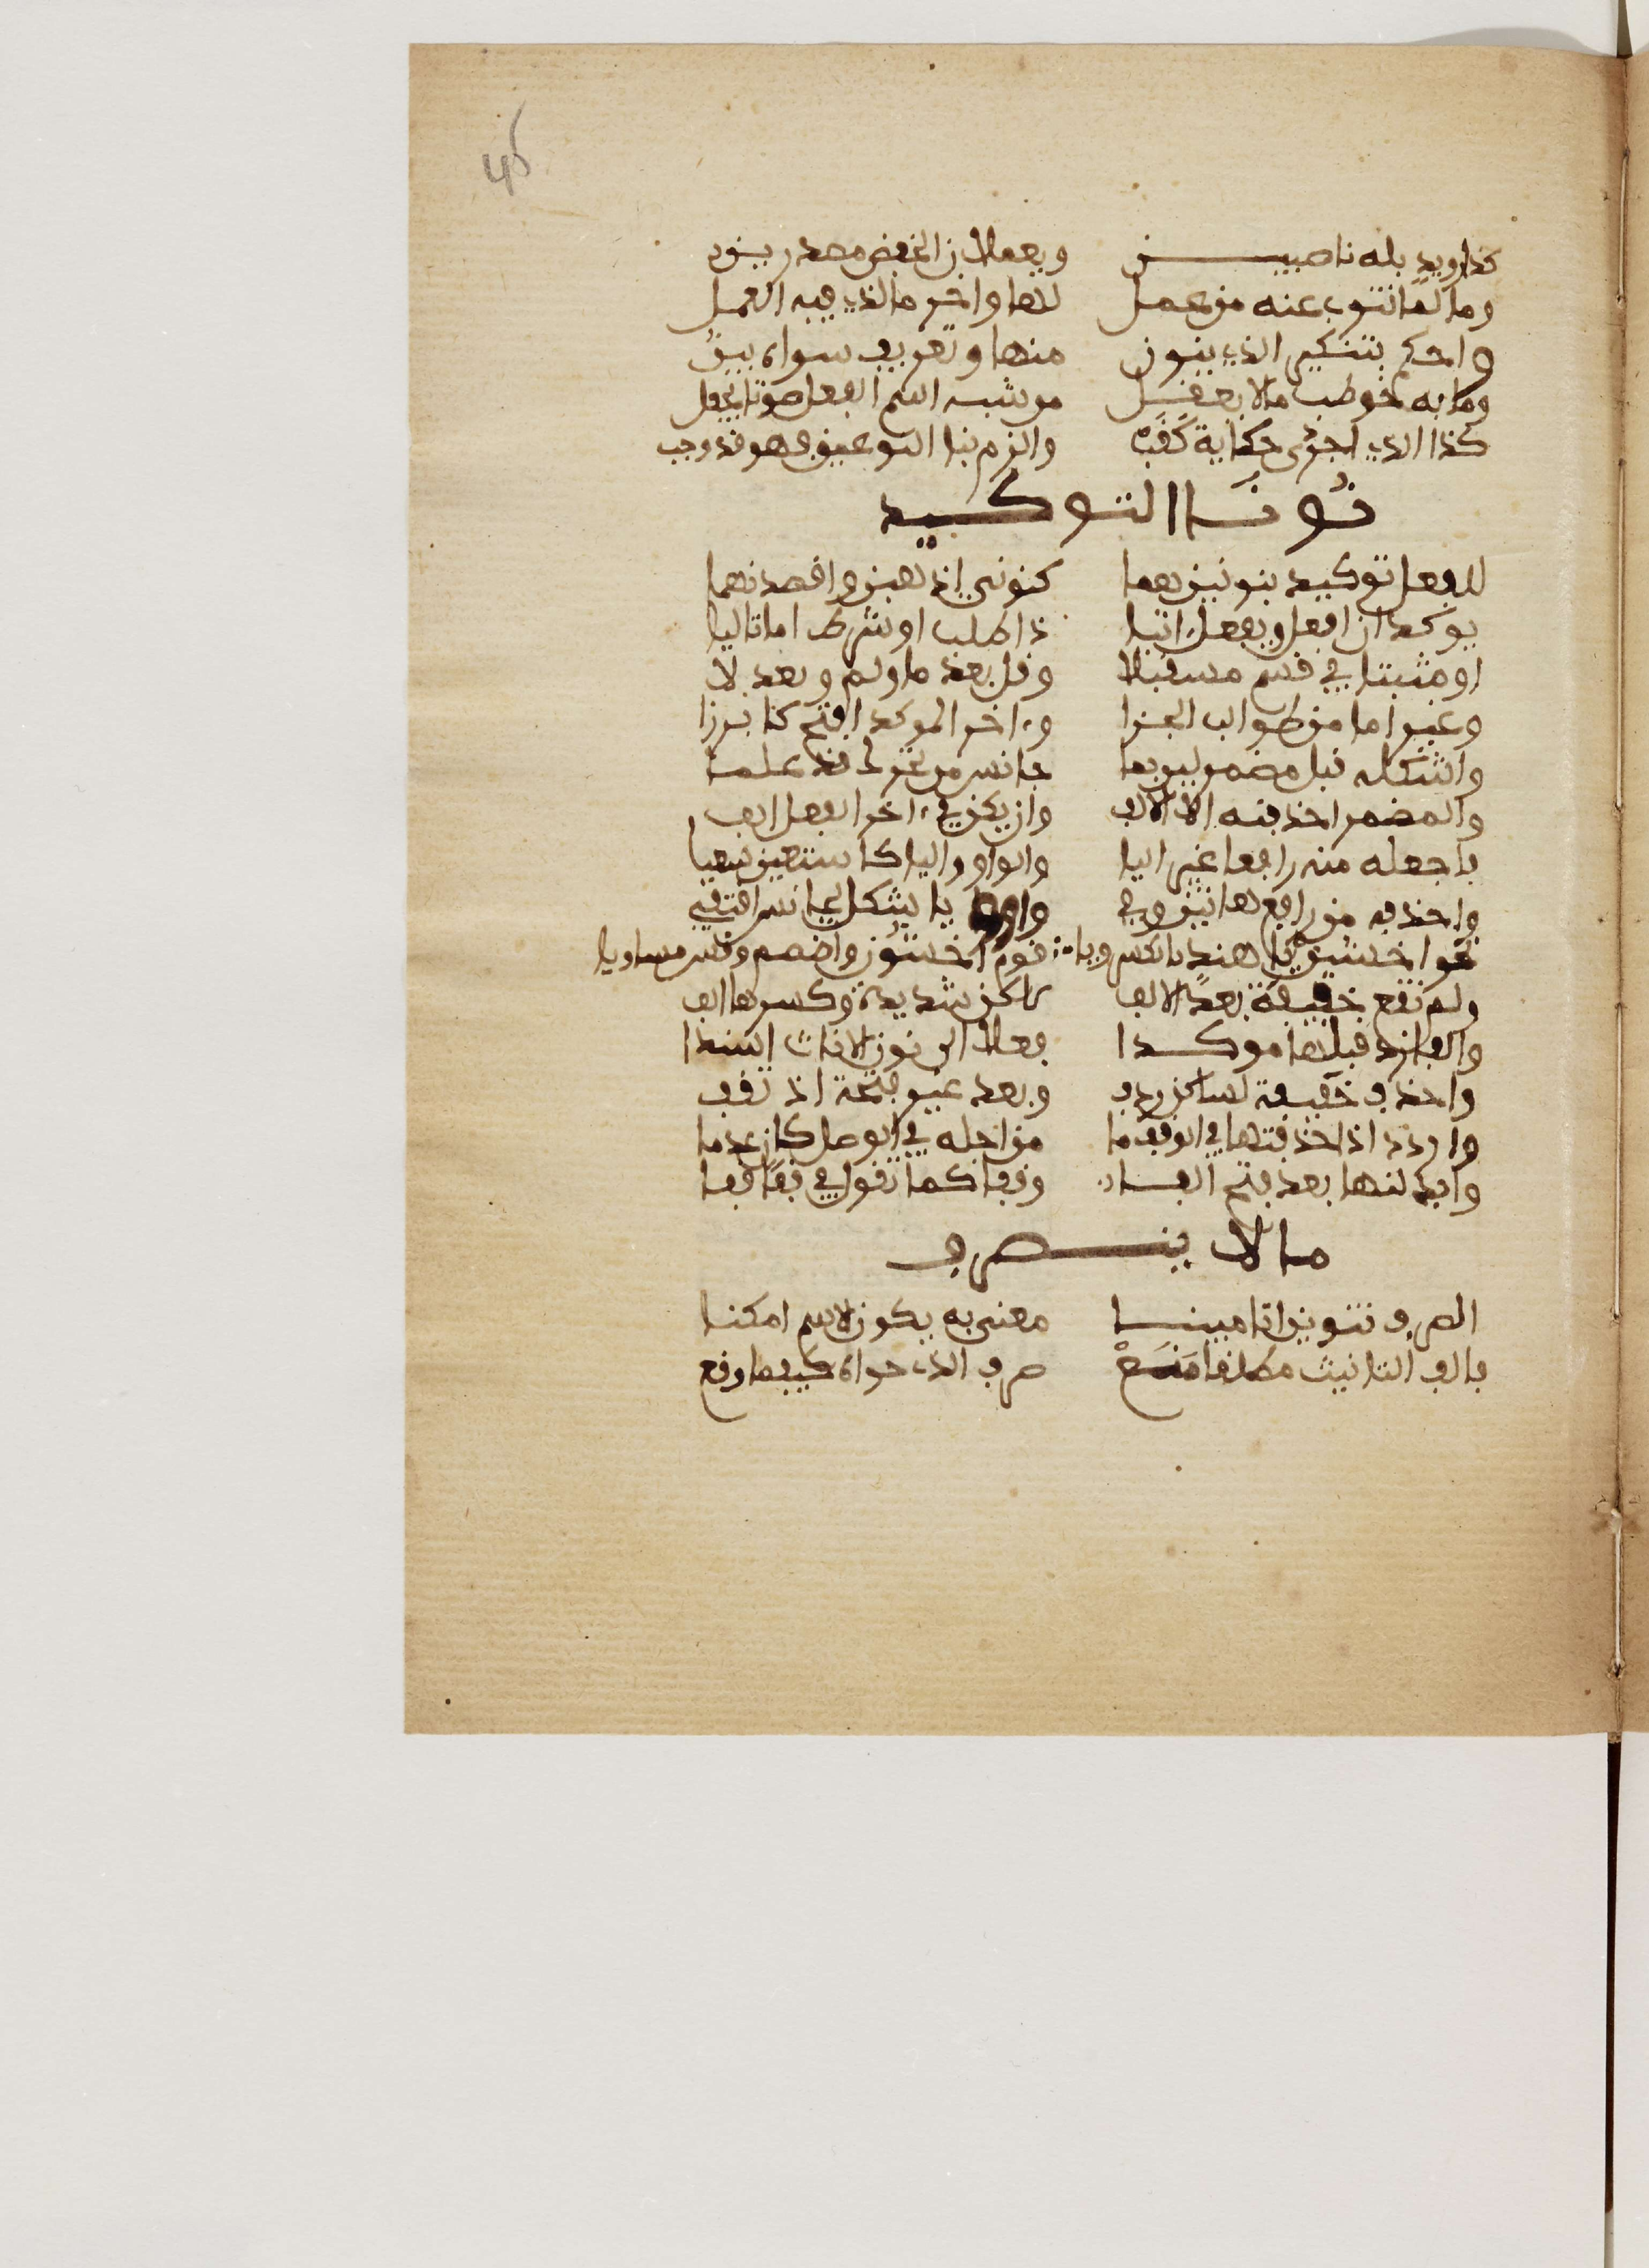 45
كذا رويد بله ناصبين ويعملان الخفض مصدرين
وما لما تنوب عنه من عمل لها واخر ما لذي فيه العمل
واحكم بتنكير الذي ينون منها وتعريف سواه بين
وما به خوطب ما لا يعقل من شبه اسم الفعل صوتا يجعل
كذا الذي اجدى حكاية كقب والزم بنا النوعين فهو قد وجب
نونا التوكيد
للفعل توكيد بنونين هما كنوني اذهبن واقصدنهما
يوكدان افعل ويفعل اتيا ذا طلب او شرطا اما تاليا
او مثبتا في قسم مستقبلا وقل بعد ما ولم وبعد لا
وغير اما من طوالب الجزا وءاخر الموكد افتح كابرزا
واشكله قبل مضمر لين بما جانس من تحرك قد علما
والمضمر احذفنه الا الالف وان يكن في ءاخر الفعل الف
فاجعله منه رافعا غير اليا والواو والياء كاسعين سعيا
واحذفه من رافع هاتين وفي واو ويا شكل مجانس اقتفي
نحو اخشين يا هند بالكسر ويا قوم اخشون واضمم وقس مساويا
ولم تقع خفيفة بعد الالف لاكن شديدة وكسرها الف
والفا زد قبلها موكدا فعلا الى نون الاناث اسندا
واحذف خفيفة لساكن ردف وبعد غير فتحة اذ تقف
واردد اذا حذفتها في الوقف ما من اجله في الوصل كان عدما
وابدلنها بعد فتح الفا وقفا كما تقول في قفا قفا
ما لا ينصرف
الصرف تنوين اتى مبينا معنى به يكون الاسم امكنا
فالف التانيث مطلقا منع صرف الذي حواه كيفما وقع